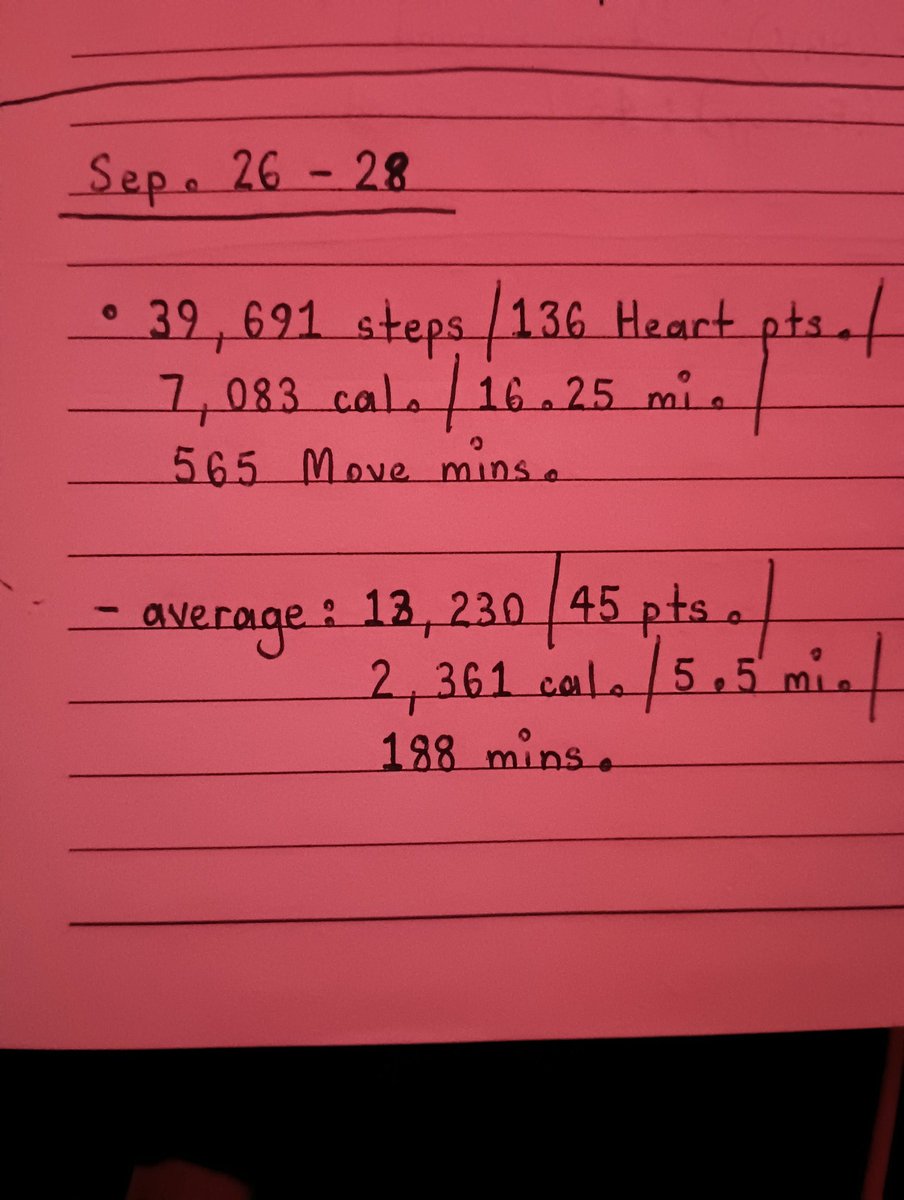 Sep. 26 - 28
• 39,691 steps / 136 Heart pts. /
7,083 cal. / 16.25 mi. /
565 Move mins.
- average: 13,230 / 45 pts. /
2,361 cal. / 5.5 mi. /
188 mins.